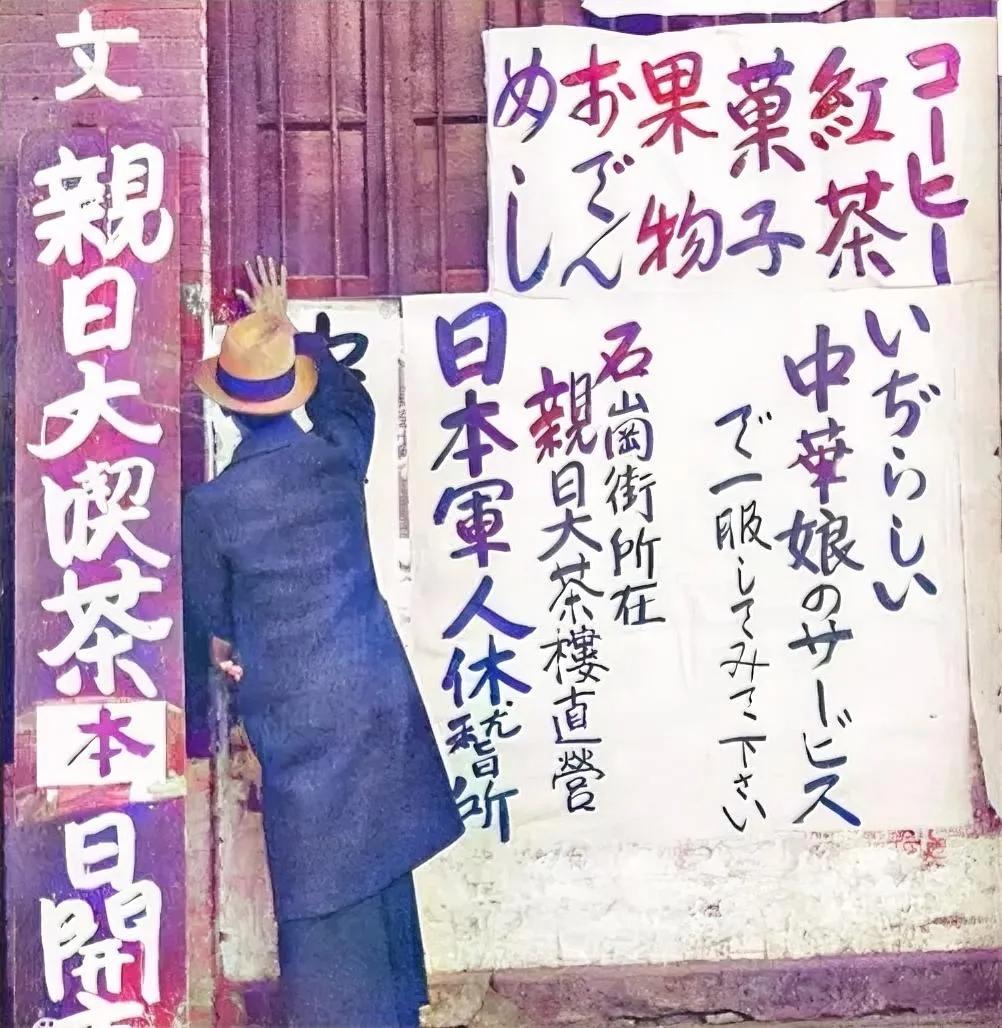 コーヒー
紅茶
菓子
果物
おでん
めし
いぢらしい
中華娘のサービス
で一服してみて下さい
石崗街所在
親日大茶樓直營
日本軍人休憩所
文
親日大喫茶
本
日開